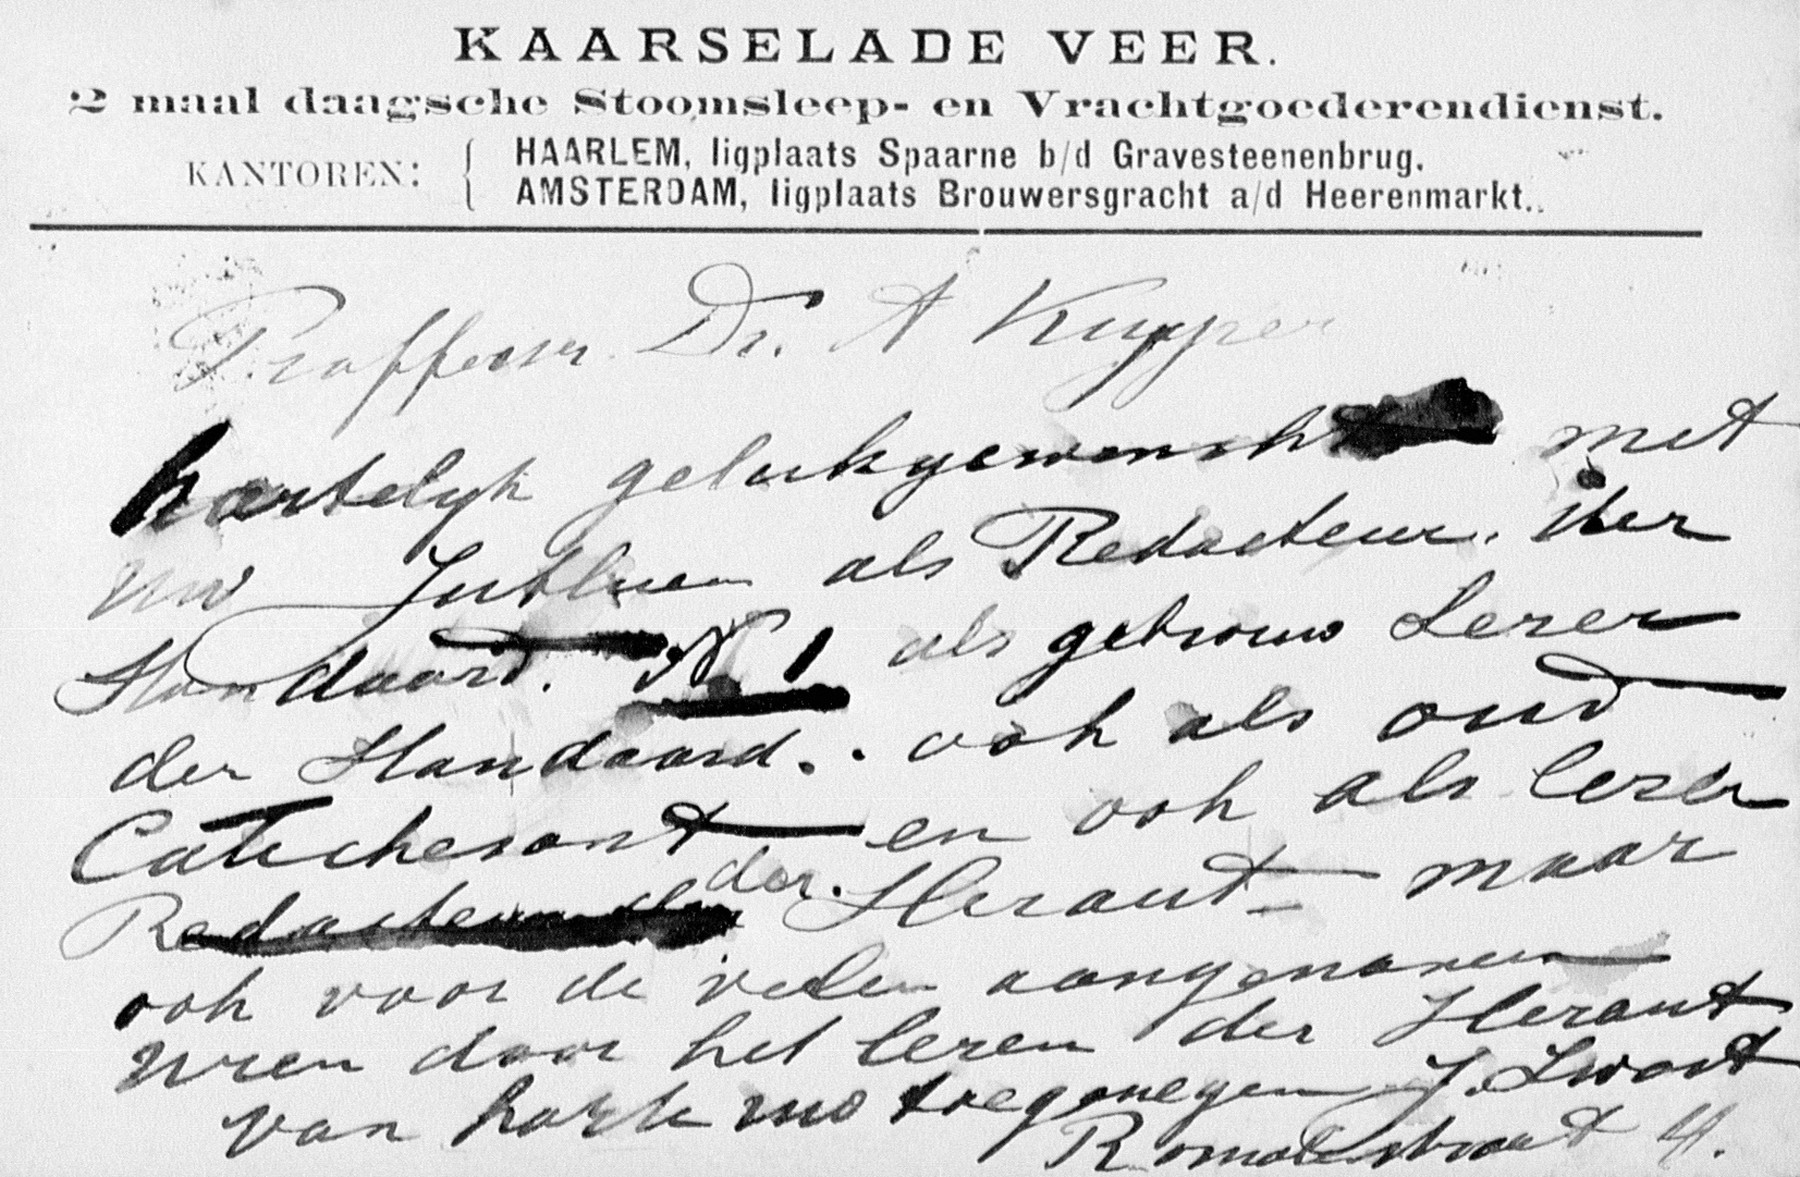 KAARSELADE VEER.
2 maal daagsche Stoomsleep- en Vrachtgoederendienst.
KANTOREN: { HAARLEM, ligplaats Spaarne b/d Gravesteenenbrug.
AMSTERDAM, ligplaats Brouwersgracht a/d Heerenmarkt.
Proffessor. Dr. A Kuyper
hartelyk gelukgewenscht met
uw Jubileum als Redacteur. der
Standaard. No 1 als getrouw Lezer
der Standaard. ook als oud
Catechesant en ook als lezer
Redacteur der. Heraut - maar
ook voor de velen aangename
uren door het lezen der Heraut
van harte uw toegenegen J. Swart
4.